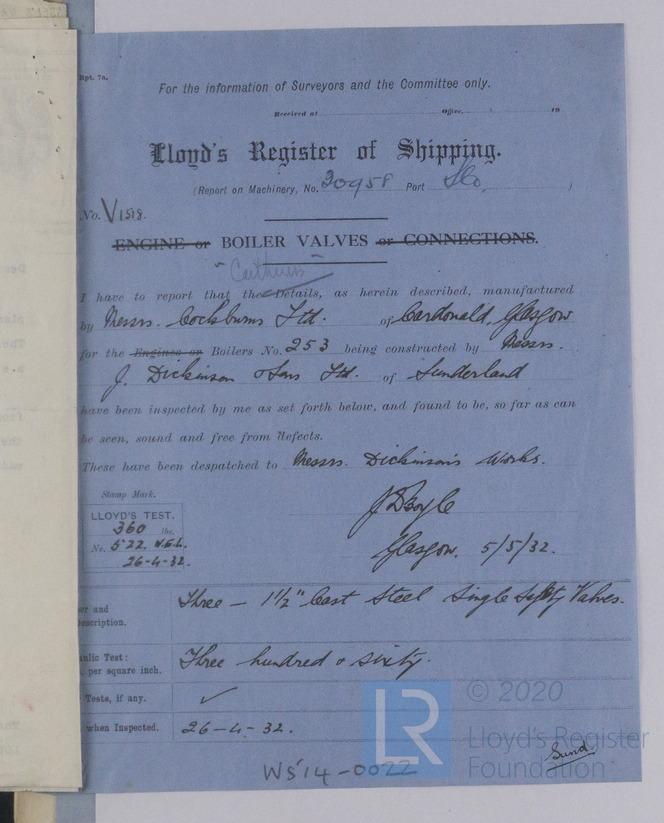 Rpt. 7a.
For the information of Surveyors and the Committee only.
Received at Office, 19
Lloyd's Register of Shipping.
(Report on Machinery, No. 30958 Port Sld. )
No. V1518.
ENGINE or BOILER VALVES or CONNECTIONS.
"Caithness"
I have to report that the Details, as herein described, manufactured
by Messrs. Cockburns Ltd. of Cardonald, Glasgow
for the Engines or Boilers No. 253 being constructed by Messrs.
J. Dickinson & Sons Ltd. of Sunderland
have been inspected by me as set forth below, and found to be, so far as can
be seen, sound and free from defects.
These have been despatched to Messrs. Dickinson's Works.
Stamp Mark.
LLOYD'S TEST.
360 lbs.
No. 522. W.G.L.
26-4-32.
J D Boyle
Glasgow. 5/5/32.
er and
escription.
Three - 1½" Cast Steel Single Safety Valves.
ulic Test:
per square inch.
Three hundred & sixty.
Tests, if any. ✓
when Inspected. 26-4-32.
Sund
WS14-0022
LR
© 2020
Lloyd's Register
Foundation